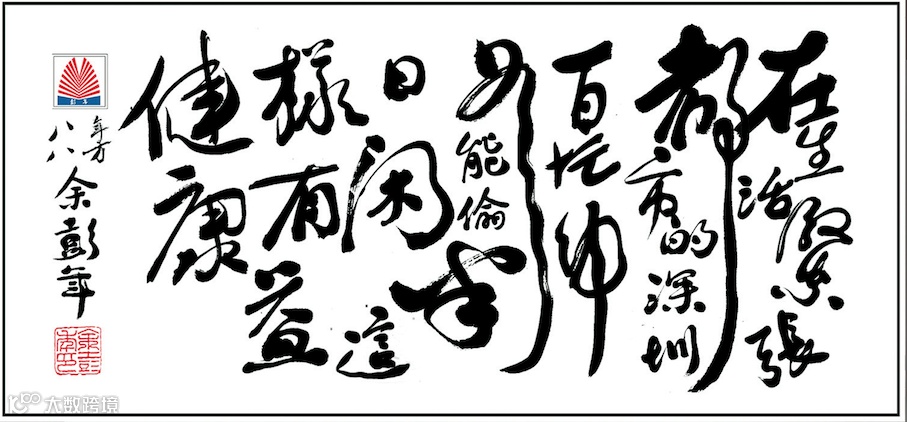 在生活緊張
都市的深圳
百忙中
能偷半
日闲這
樣有益
健康
年方
八八
余彭年
余彭年印
彭年
大数跨境